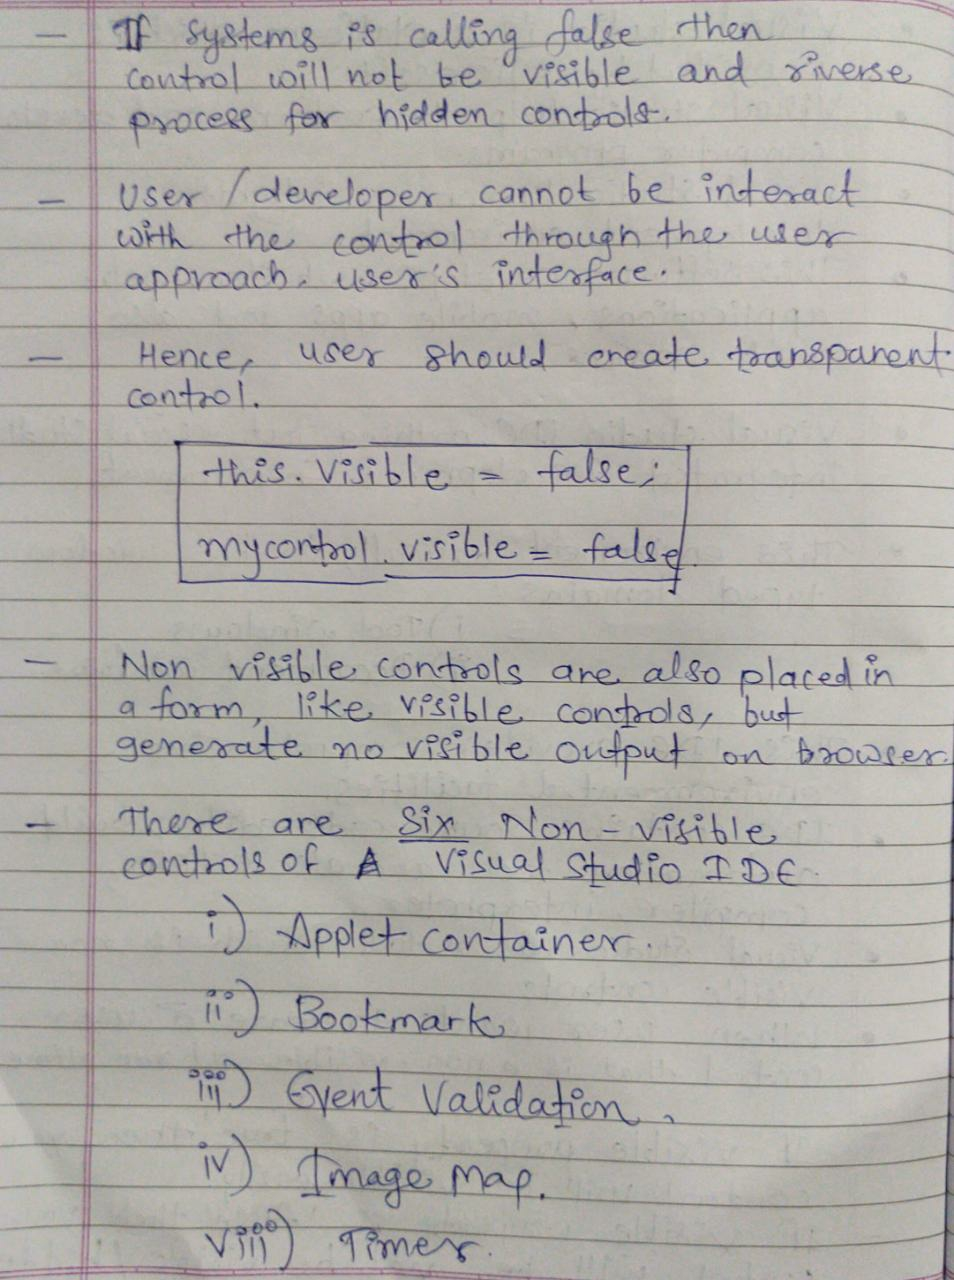 - If systems is calling false then
control will not be visible and riverse
process for hidden controls.
- User / developer cannot be interact
with the control through the user
approach. user's interface.
- Hence, user should create transparent
control.
this. Visible = false;
mycontrol. visible = false
- Non visible controls are also placed in
a form, like visible controls, but
generate no visible output on browser.
- There are Six Non-visible
controls of A Visual Studio IDE.
i) Applet container.
ii) Bookmark
iii) Event Validation.
iv) Image Map.
viii) Timer.